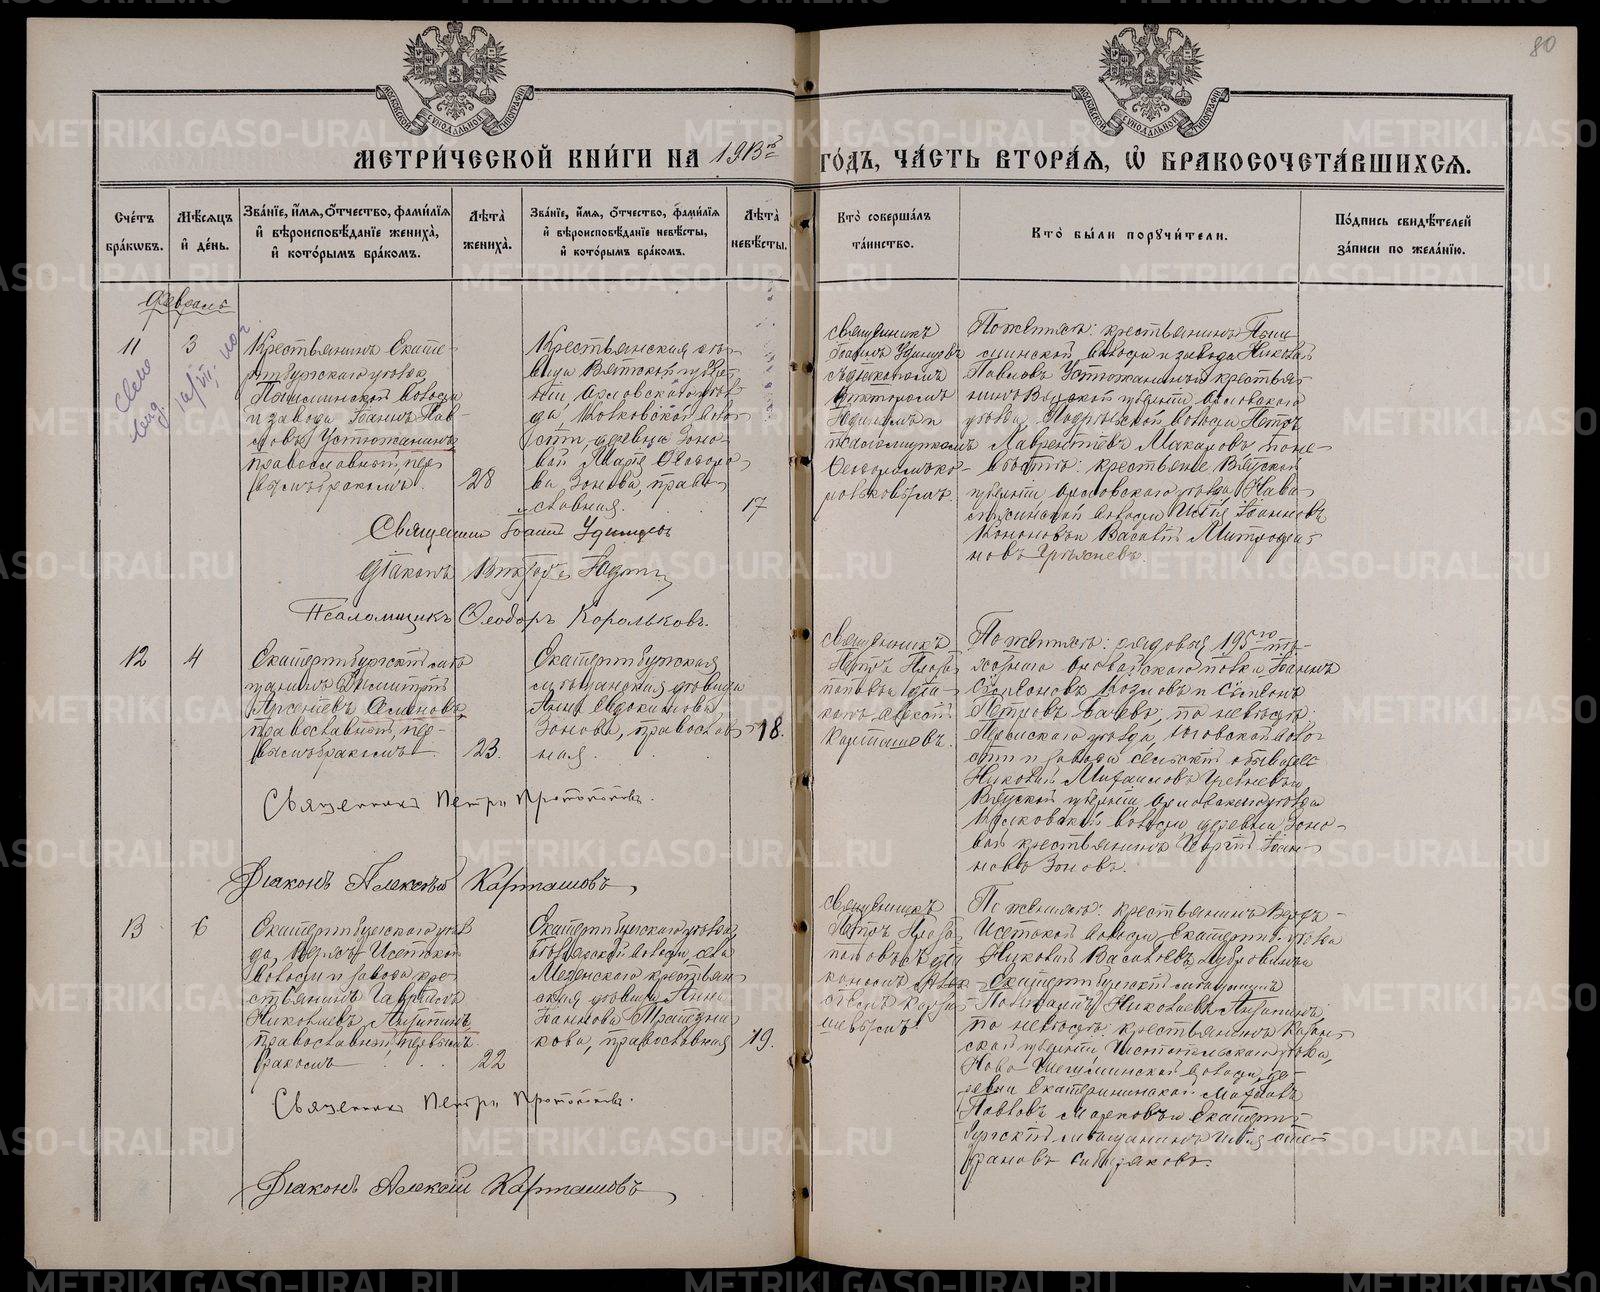 80
МОСКОВСКОЙ СѴНОДАЛЬНОЙ ТИПОГРАФІИ
МОСКОВСКОЙ СѴНОДАЛЬНОЙ ТИПОГРАФІИ
МЕТРИ́ЧЕСКОЙ КНИ́ГИ НА 1913й ГО́ДЪ, ЧА́СТЬ ВТОРА́Я, Ѡ҆ БРАКОСОЧЕТА́ВШИХСЯ.
Сче́тъ бра́кѡвъ.
Мѣ́сяцъ и҆ де́нь.
Зва́нїе, и҆́мя, о҆́тчество, фами́лїя и҆ вѣроисповѣ́данїе жениха̀, и҆ кото́рымъ бра́комъ.
Лѣта̀ жениха̀.
Зва́нїе, и҆́мя, о҆́тчество, фами́лїя и҆ вѣроисповѣ́данїе невѣ́сты, и҆ кото́рымъ бра́комъ.
Лѣта̀ невѣ́сты.
Кто̀ соверша́лъ та́инство.
Кто̀ бы́ли порꙋчи́тели.
По́дпись свидѣ́телей за́писи по жела́нїю.
Февраль
11
3
Крестьянинъ Екате-
ринбургскаго уѣзда,
Пышминской волости
и завода Іоаннъ Пав-
ловъ Устюжанинъ,
православный, пер-
вымъ бракомъ.
28
Крестьянская дѣ-
вица Вятской губер-
ніи, Орловскаго уѣз-
да, волос-
ти, деревни Зоно-
вой, Марія Ѳеодоро-
ва Зонова, право-
славная.
17
Священникъ
Іоаннъ Удинцевъ
съ діакономъ
Викторомъ
Юдинымъ и
псаломщикомъ
Ѳеодоромъ Ко-
рольковымъ.
По женихѣ: крестьянинъ Пыш-
минской волости и завода Николай
Павловъ Устюжанинъ и крестья-
нинъ Вятской губерніи Орловскаго
уѣзда, волости Петръ
Лаврентіевъ Макаровъ; по не-
вѣстѣ: крестьяне Вятской
губерніи Орловскаго уѣзда,
волости Илія Іоанновъ
Кононовъ и Василій Митрофа-
новъ
Священникъ Іоаннъ Удинцевъ
Діаконъ Викторъ Юдинъ
Псаломщикъ Ѳеодоръ Корольковъ.
12
4
Екатеринбургскій мѣ-
щанинъ Димитрій
Арсеніевъ
православный, пер-
вымъ бракомъ
23.
Екатеринбургская
мѣщанская дѣвица
Анна Евдокимова
Зонова, православ-
ная.
18.
Священникъ
Петръ Прото-
поповъ и діа-
конъ Алексій
Карташовъ.
По женихѣ: рядовой 195го пѣ-
хотнаго Оровайскаго полка Іоаннъ
Стефановъ Козловъ и Стефанъ
Петровъ по невѣстѣ:
уѣзда, волос-
ти и завода сельскій обыватель
Николай Михаиловъ и
Вятской губерніи, Орловскаго уѣзда
волости деревни Зоно-
вой крестьянинъ Георгій Іоан-
новъ Зоновъ.
Священникъ Петръ Протопоповъ.
Діаконъ Алексѣй Карташовъ,
13
6
Екатеринбургскаго уѣз-
да, Верхъ-Исетской
волости и завода кре-
стьянинъ Гавріилъ
Николаевъ Антипинъ,
православный, первымъ
бракомъ
22
Екатеринбургскаго уѣзда,
волости, села
Мезенскаго крестьян-
ская дѣвица Анна
Іоаннова
православная
19.
Священникъ
Петръ Прото-
поповъ съ діа-
кономъ Алек-
сіемъ Карта-
шевымъ.
По женихѣ: крестьянинъ Верхъ-
Исетской волости, Екатеринб. уѣзда
Николай Васильевъ Дубровинъ и
Екатеринбургскій мѣщанинъ
Николаевъ Антипинъ,
по невѣстѣ: крестьянинъ Казан-
ской губерніи Чистопольскаго уѣзда,
Ново-Шешминской волости, де-
ревни Екатерининской Михаилъ
Павловъ Марковъ и Екатерин-
бургскій мѣщанинъ Илія Сте-
фановъ Сибиряковъ.
Священникъ Петръ Протопоповъ.
Діаконъ Алексій Карташовъ,
METRIKI.GASO-URAL.RU